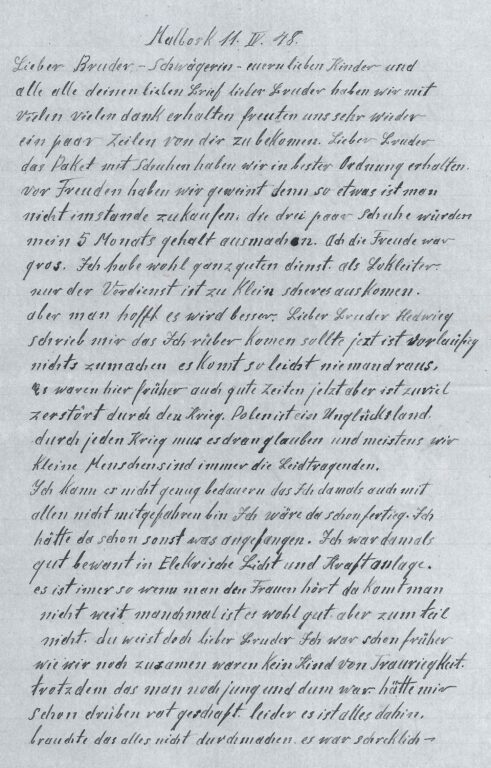 Malbork 11. IV. 48.
Lieber Bruder – Schwägerin – euern lieben Kinder und
alle alle deinen lieben Brief lieber Bruder haben wir mit
vielen vielen dank erhalten freuten uns sehr wieder
ein paar Zeilen von dir zu bekomen. Lieber Bruder
das Paket mit Schuhen haben wir in bester Ordnung erhalten.
vor Freuden haben wir geweint denn so etwas ist man
nicht imstande zu kaufen. die drei paar Schuhe würden
mein 5 Monats gehalt ausmachen. Ach die Freude war
gros. Ich habe wohl ganz guten dienst. als Lokleiter.
nur der Verdienst ist zu klein scheres auskomen.
aber man hofft es wird besser. Lieber Bruder Hedwieg
schrieb mir das Ich rüber komen sollte jezt ist vorlaufieg
nichts zumachen es komt so leicht niemand raus.
Es waren hier früher auch gute Zeiten jetzt aber ist zuviel
zerstört durch den Krieg. Polen ist ein Unglücksland.
durch jeden Krieg mus es dran glauben und meistens wir
kleine Menschen sind immer die Leidtragenden.
Ich kann es nicht genug bedauern das Ich damals auch mit
allen nicht mitgefahren bin Ich wäre da schon fertieg. Ich
hätte da schon sonst was angefangen. Ich war damals
gut bewant in Elekrische Licht und Kraftanlage.
es ist imer so wenn man den Frauen hört da komt man
nicht weit manchmal ist es wohl gut aber zum teil
nicht. du weist doch lieber Bruder Ich war schon früher
wie wir noch zusamen waren kein Kind von Traurigkeit.
trotzdem das man noch jung und dum war hätte mir
schon drüben rat geschaft. leider es ist alles dahin.
brauchte das alles nicht durchmachen es war schreklich –